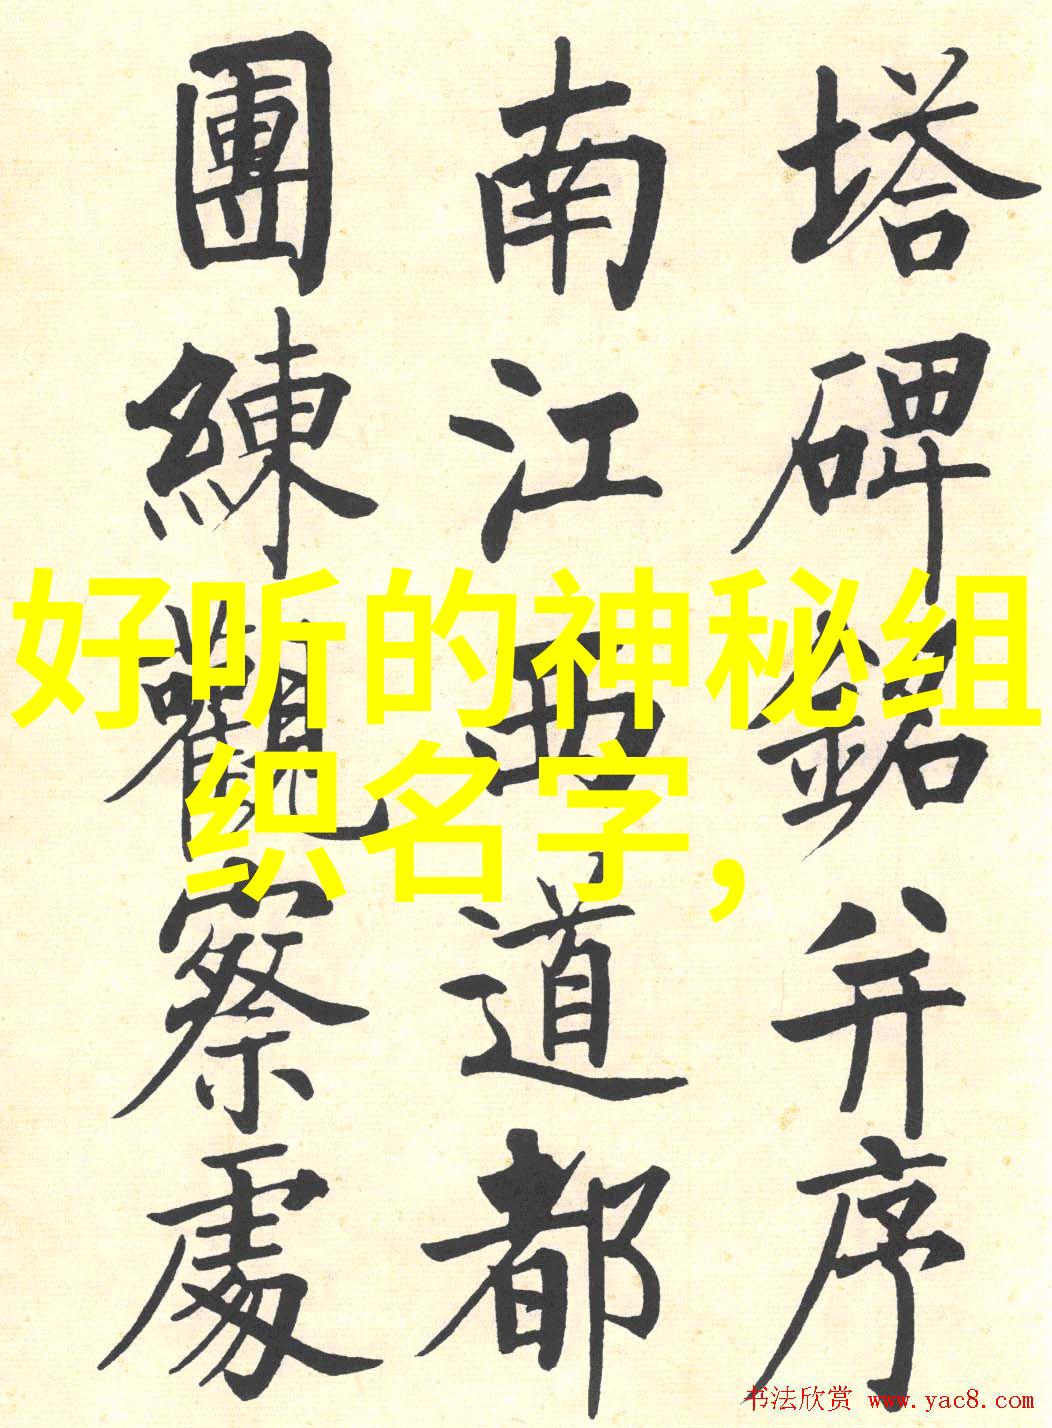 塔碑銘并序
南江西道都
團練觀察處
好听的神秘组
织名字，
书法欣赏 www.yac8.com